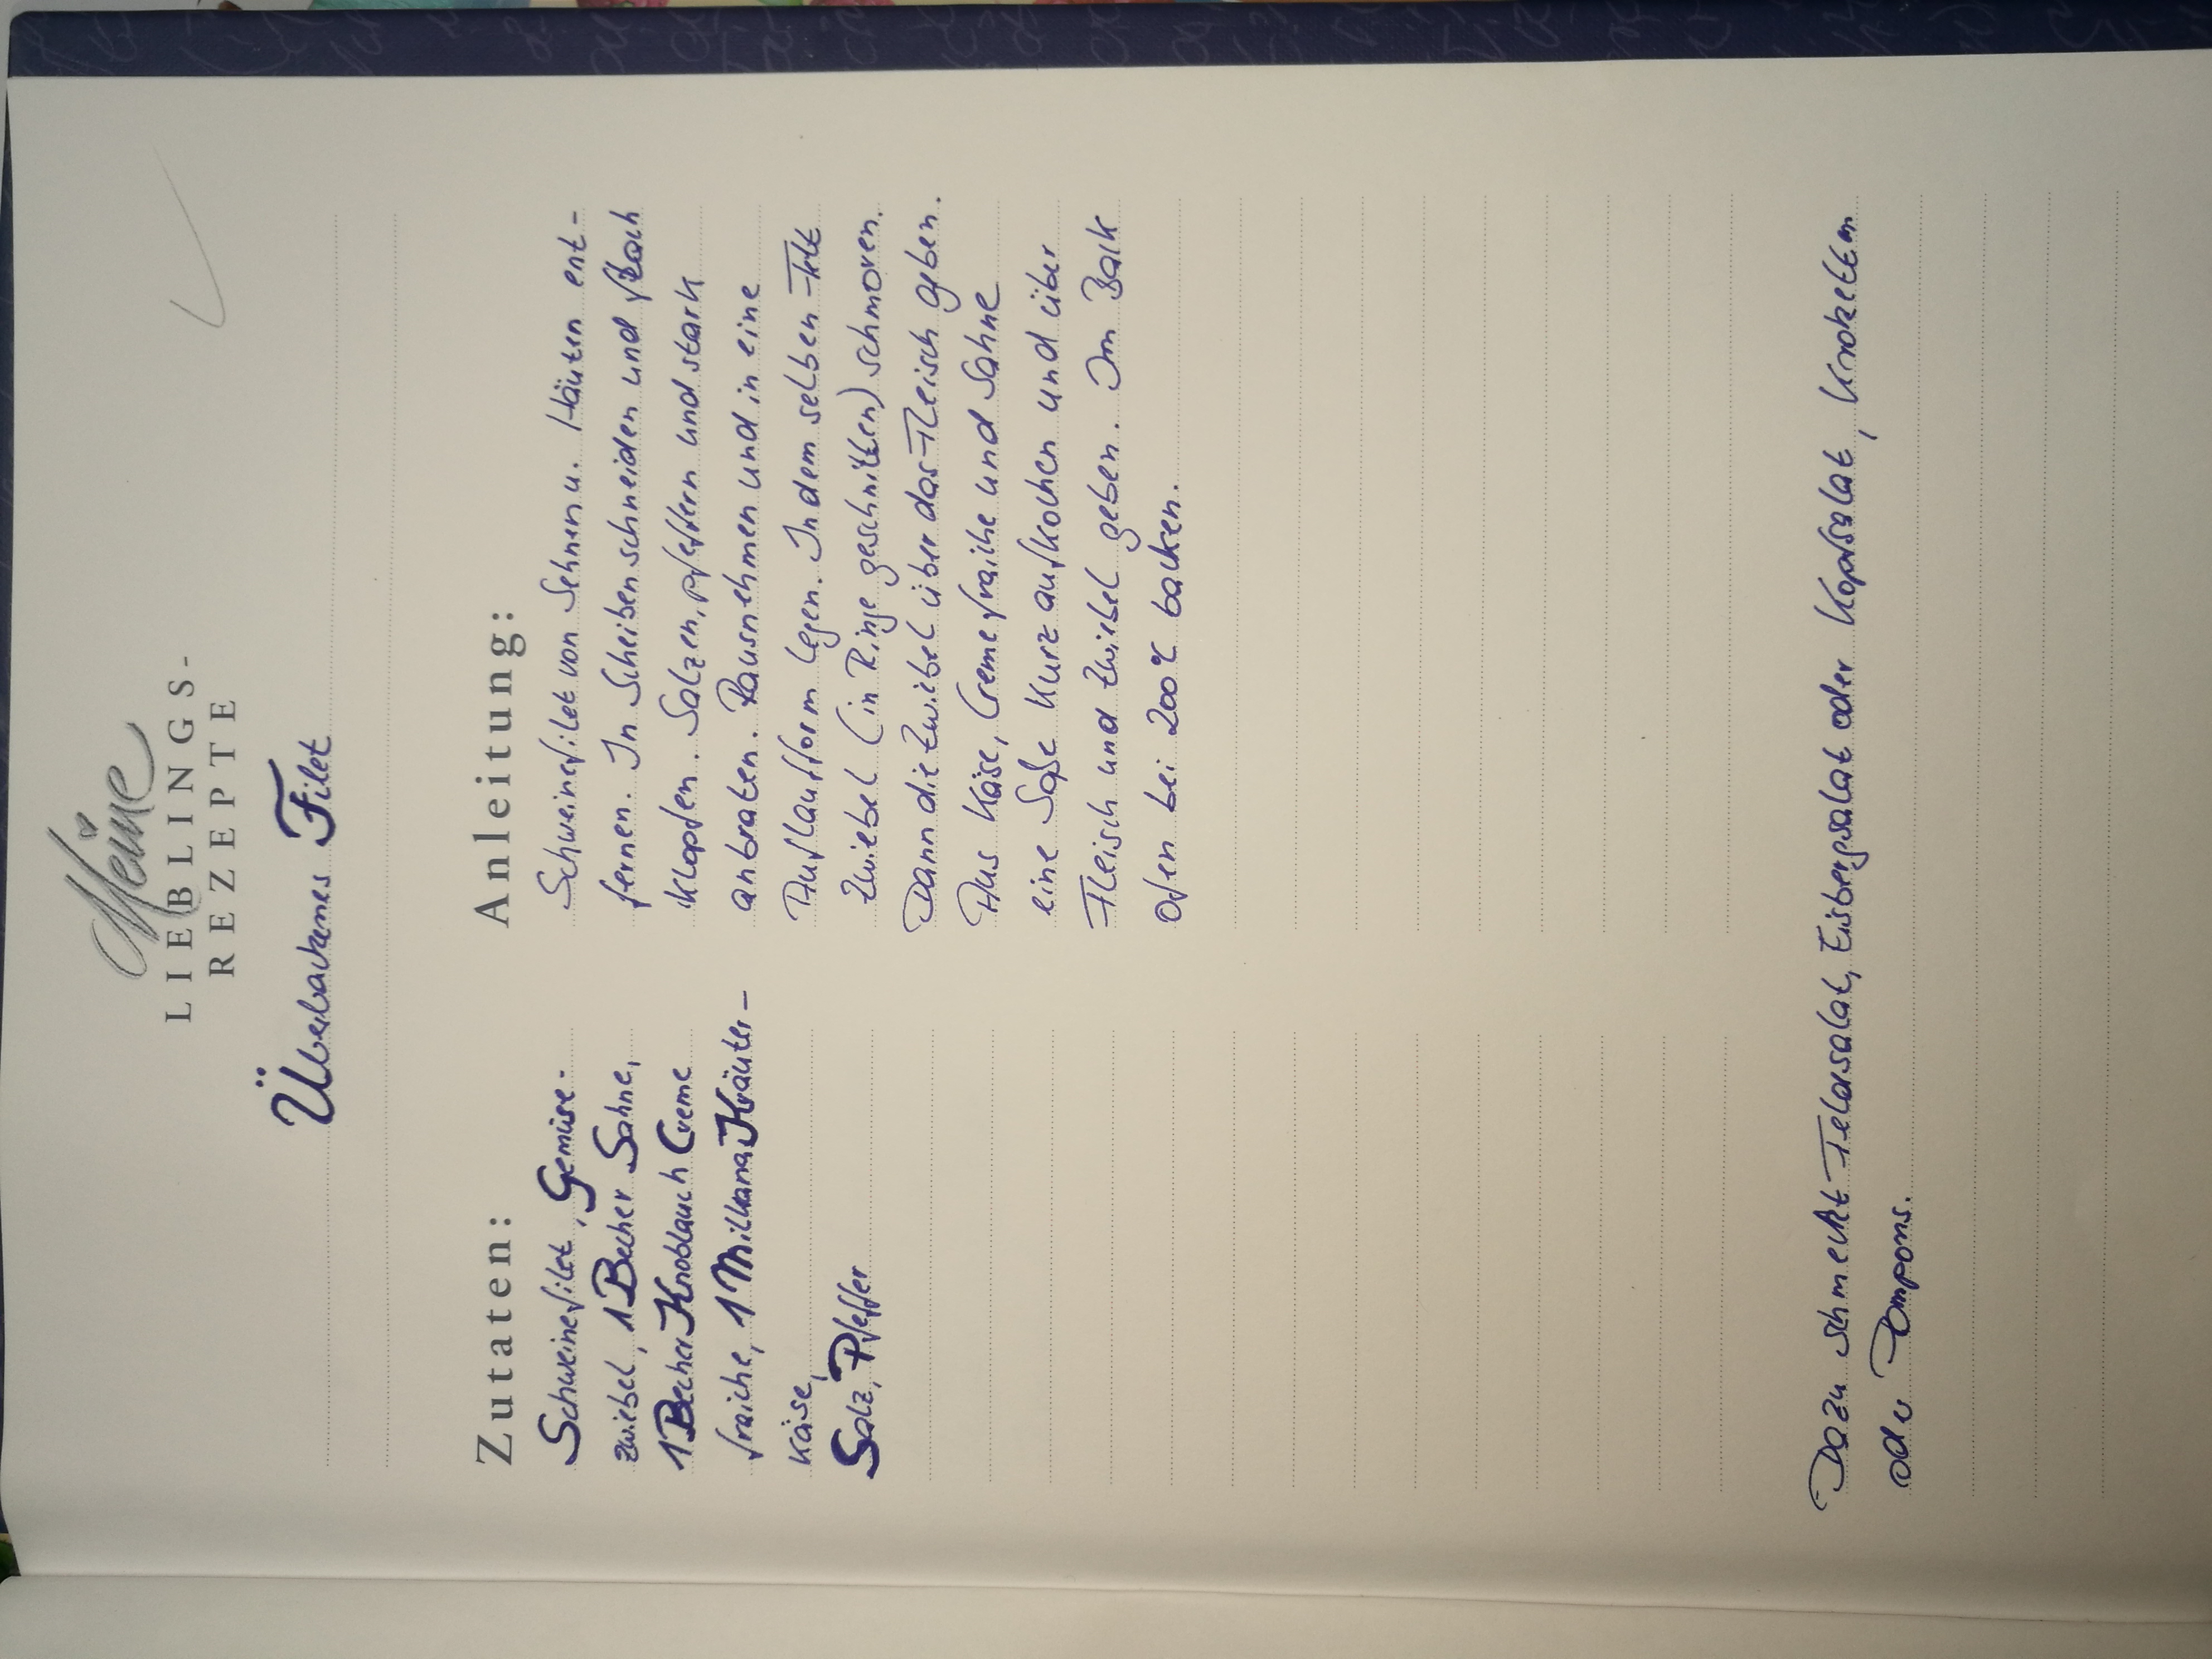 Meine
LIEBLINGS-
REZEPTE
Überbackenes Filet
Zutaten:
Schweinefilet, Gemüse-
zwiebel, 1 Becher Sahne,
1 Becher Knoblauch Creme
fraiche, 1 Milkana Kräuter-
käse,
Salz, Pfeffer
Anleitung:
Schweinefilet von Sehnen u. Häuten ent-
fernen. In Scheiben schneiden und flach
klopfen. Salzen, pfeffern und stark
anbraten. Rausnehmen und in eine
Auflaufform legen. In dem selben Fett
Zwiebel (in Ringe geschnitten) schmoren.
Dann die Zwiebel über das Fleisch geben.
Aus Käse, Creme fraiche und Sahne
eine Soße kurz aufkochen und über
Fleisch und Zwiebel geben. Im Back
ofen bei 200°C backen.
Dazu schmeckt Feldsalat, Eisbergsalat oder Kopfsalat, Kroketten
oder Pompons.